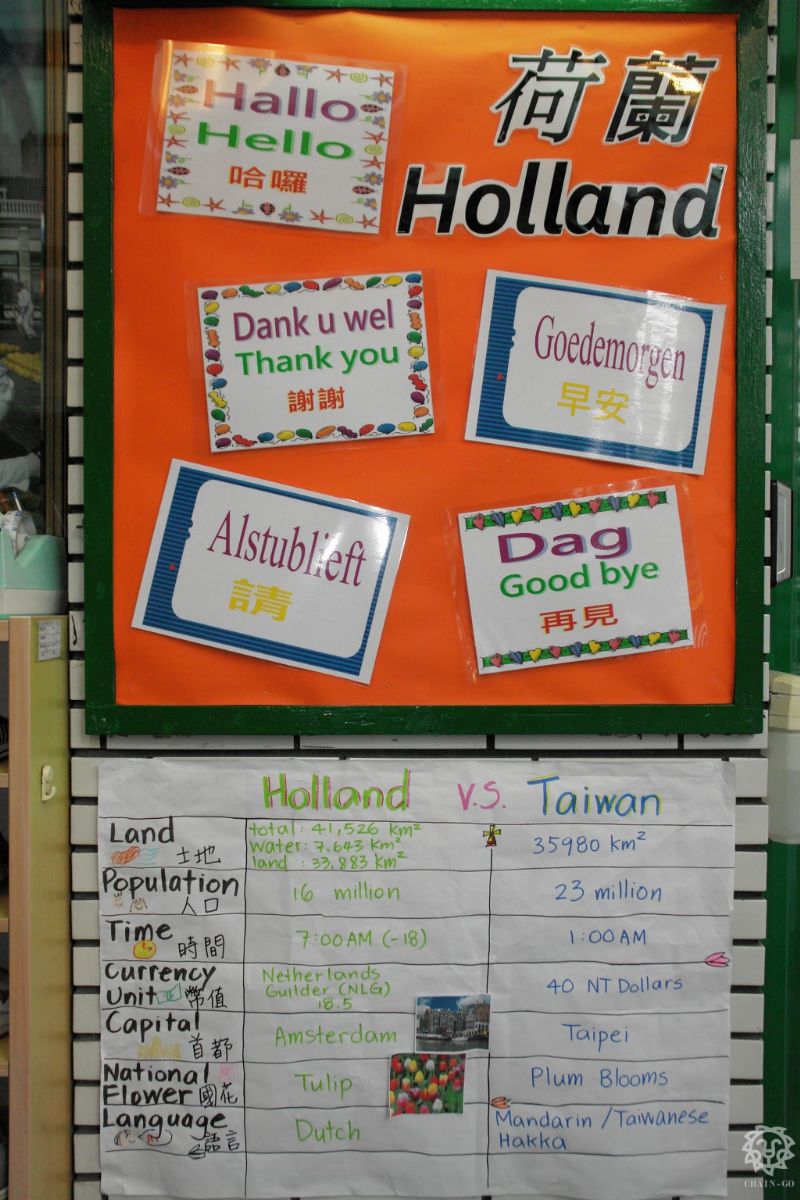 荷蘭
Holland
Hallo
Hello
哈囉
Dank u wel
Thank you
謝謝
Goedemorgen
早安
Alstublieft
請
Dag
Good bye
再見
Holland V.S. Taiwan
Land 土地
total: 41,526 km²
water: 7,643 km²
land : 33,883 km²
35980 km²
Population 人口
16 million
23 million
Time 時間
7:00 AM (-18)
1:00 AM
Currency Unit 幣值
Netherlands
Guilder (NLG)
18.5
40 NT Dollars
Capital 首都
Amsterdam
Taipei
National Flower 國花
Tulip
Plum Blooms
Language 語言
Dutch
Mandarin / Taiwanese
Hakka
CHAIN-GO